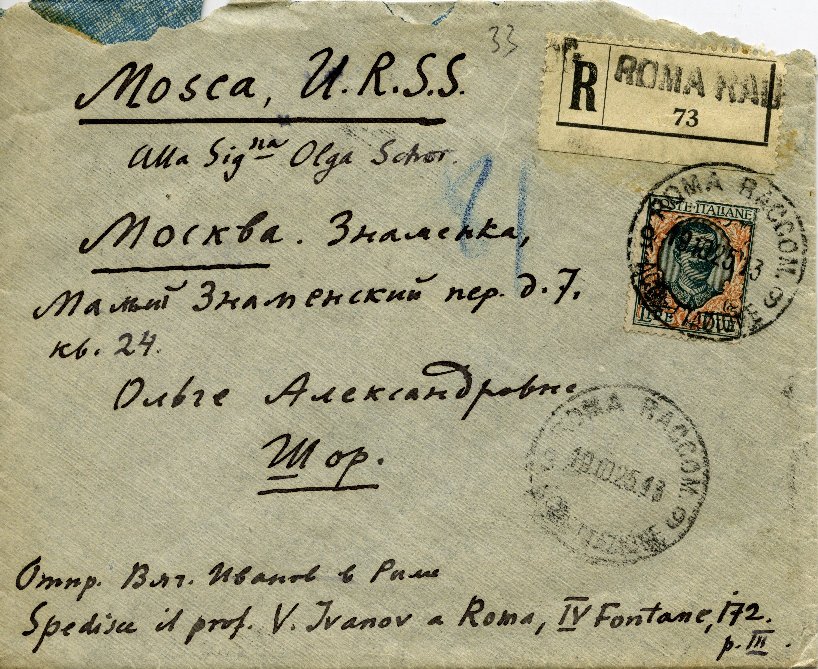 33
Mosca, U.R.S.S.
R ROMA RAC
73
Alla Sig.na Olga Schor.
Москва. Знаменка,
Малый Знаменский пер. д. 7.
кв. 24.
Ольге Александровне
Шор.
POSTE ITALIANE
LIRE
ROMA RACCOM. 9
ROMA RACCOM. 9
19.10.25.13
Отпр. Вяч. Иванов в Риме
Spedisce il prof. V. Ivanov a Roma, IV Fontane, 172.
p. III.